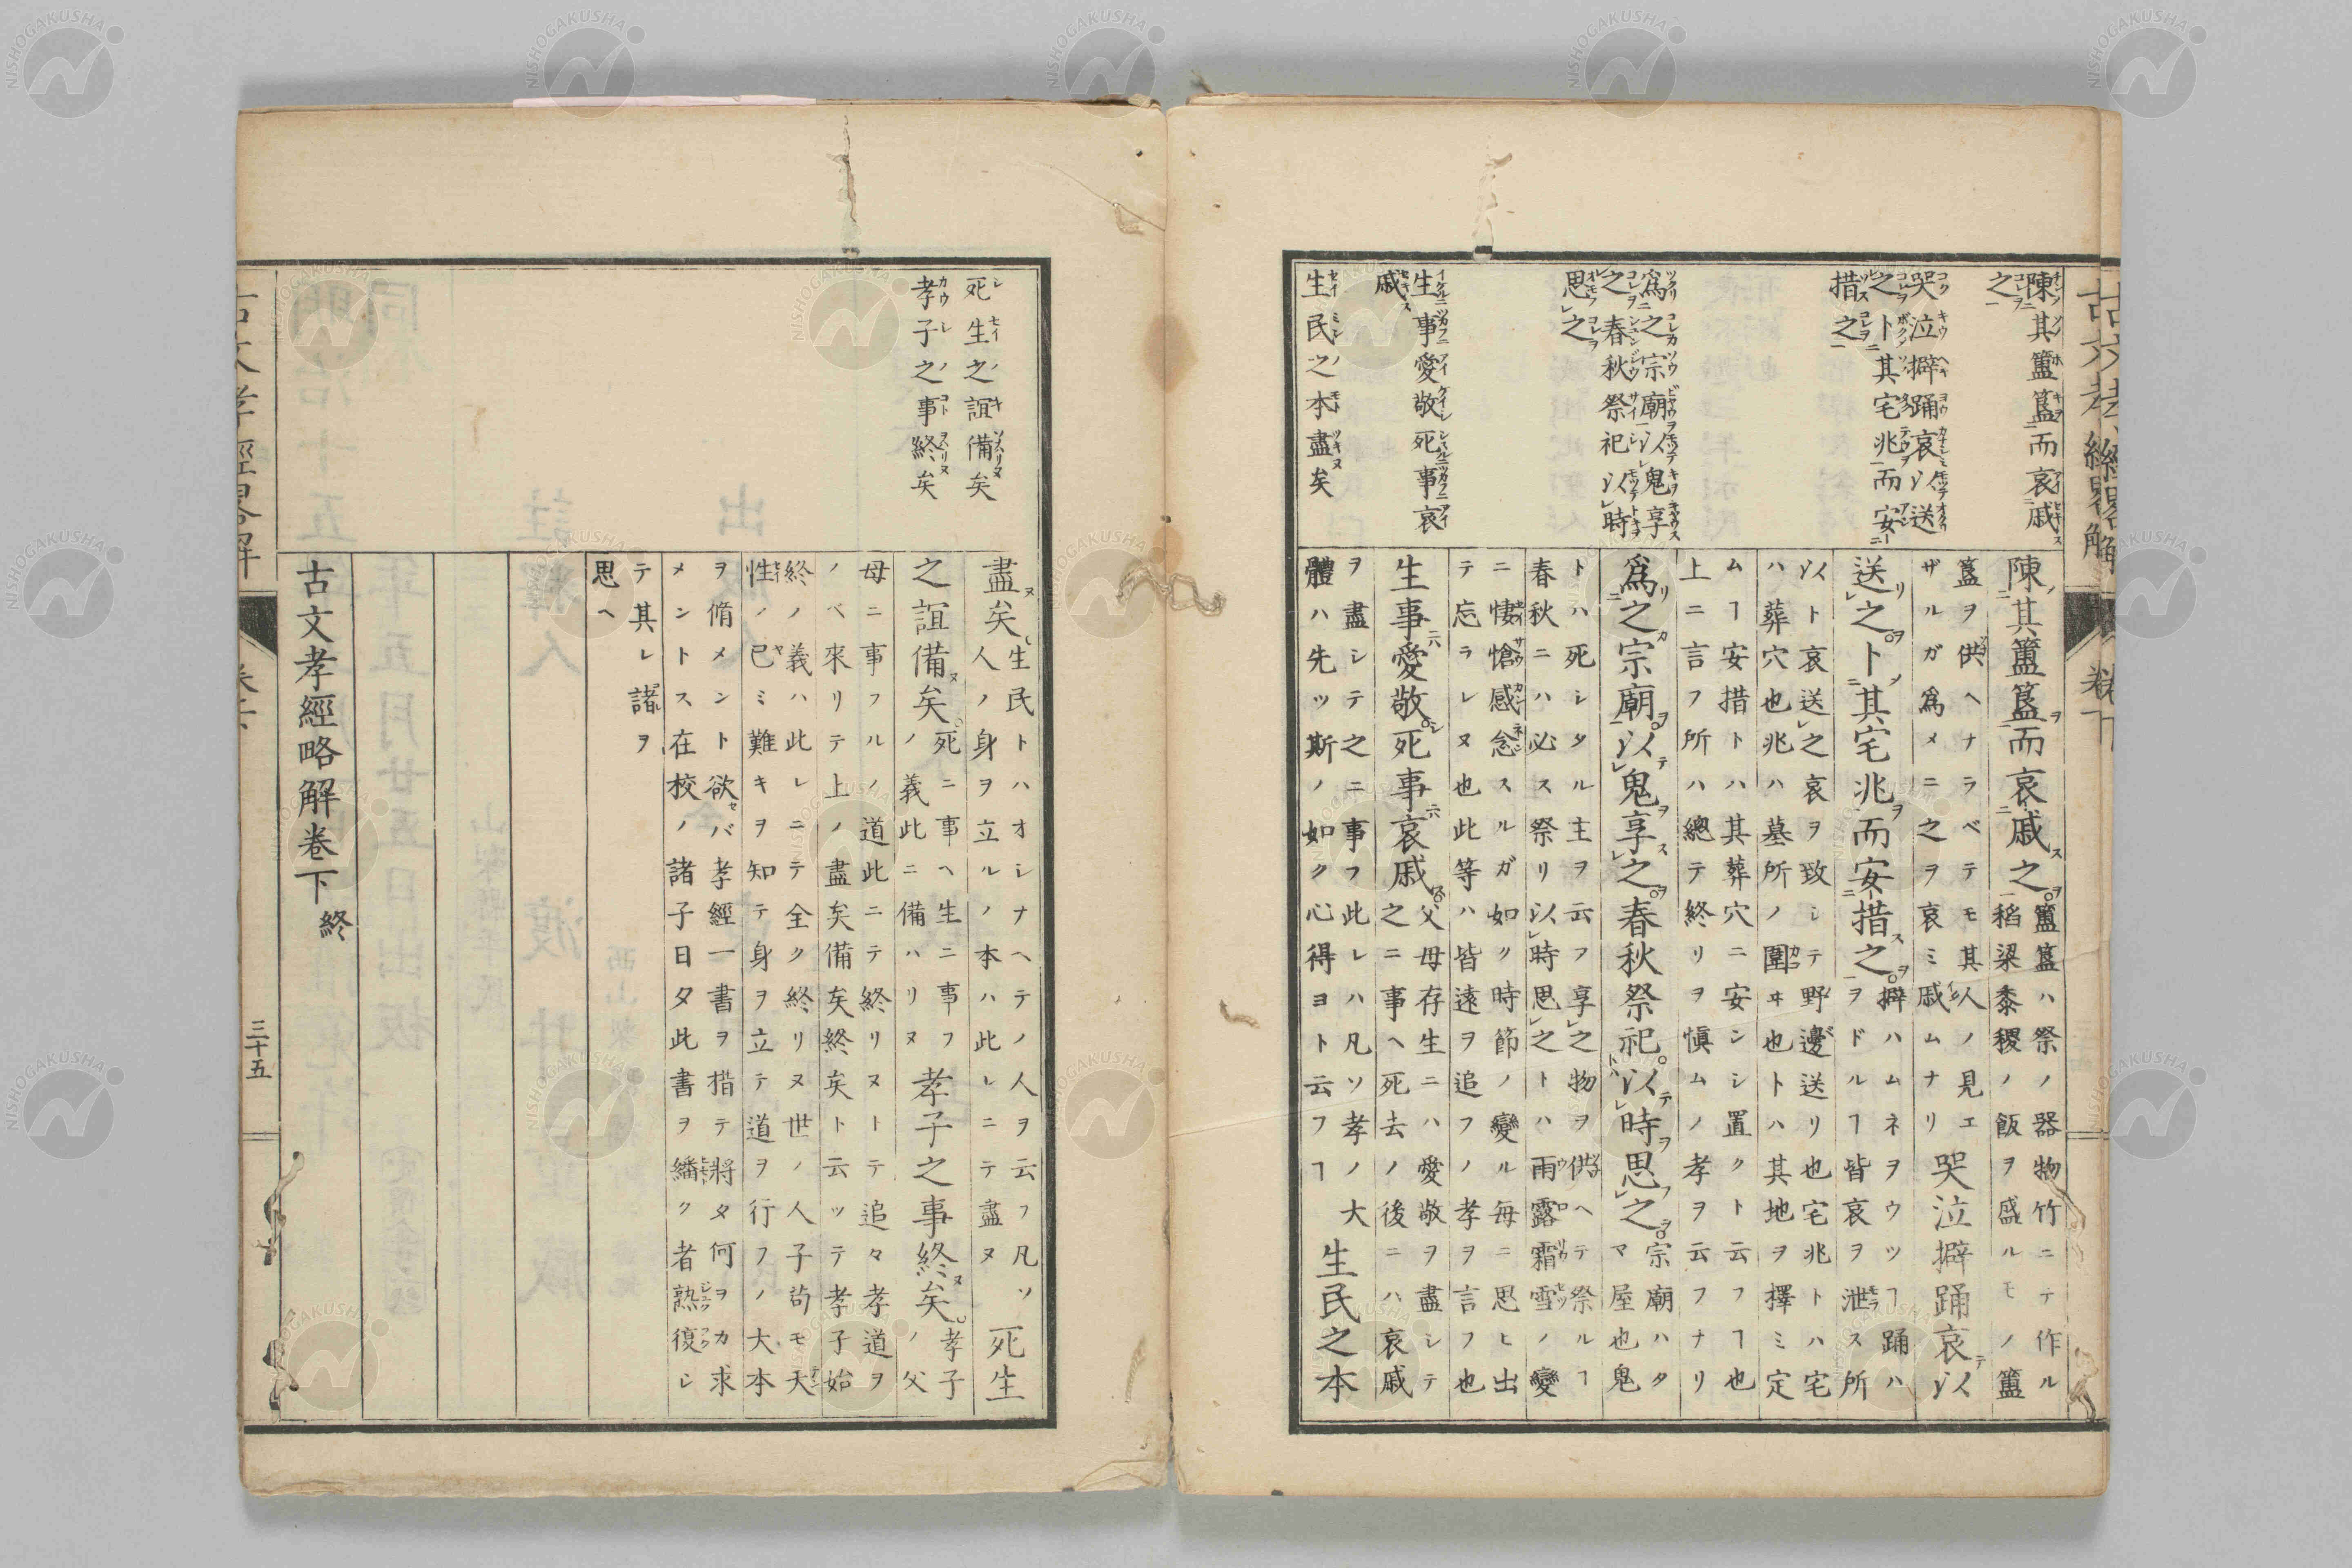 古文孝經畧解
卷下
陳其簠簋而哀戚
之
哭泣擗踊哀以送
之卜其宅兆而安
措之
爲之宗廟以鬼享
之春秋祭祀以時
思之
生事愛敬死事哀
戚
生民之本盡矣
陳其簠簋而哀戚之
簠簋ハ祭ノ器物竹ニテ作ル
稻粱黍稷ノ飯ヲ盛ルモノ簠
簋ヲ供ヘナラベテモ其人ノ見エ
ザルガ爲メニ之ヲ哀ミ戚ムナリ
哭泣擗踊哀以
送之卜其宅兆而安措之
擗ハムネヲウツヿ踊ハ
ヲドルヿ皆哀ヲ泄ス所
以ト哀送之哀ヲ致シテ野邊送リ也宅兆トハ宅
ハ葬穴也兆ハ墓所ノ圍ヰ也卜ハ其地ヲ擇ミ定
ムヿ安措トハ其葬穴ニ安ンシ置クト云フヿ也
上ニ言フ所ハ總テ終リヲ愼ムノ孝ヲ云フナリ
爲之宗廟以鬼享之春秋祭祀以時思之
宗廟ハタ
マ屋也鬼
トハ死シタル主ヲ云フ享之物ヲ供ヘテ祭ルヿ
春秋ニハ必ス祭リ以時思之トハ雨露霜雪ノ變
ニ悽愴感念スルガ如ク時節ノ變ル毎ニ思ヒ出
テ忘ラレヌ也此等ハ皆遠ヲ追フノ孝ヲ言フ也
生事愛敬死事哀戚
父母存生ニハ愛敬ヲ盡シテ
之ニ事ヘ死去ノ後ニハ哀戚
ヲ盡シテ之ニ事フ此レハ凡ソ孝ノ大
體ハ先ッ斯ノ如ク心得ヨト云フヿ
生民之本
死生之誼備矣
孝子之事終矣
盡矣
生民トハオシナヘテノ人ヲ云フ凡ソ
人ノ身ヲ立ルノ本ハ此レニテ盡ヌ
死生
之誼備矣
死ニ事ヘ生ニ事フ
ノ義此ニ備ハリヌ
孝子之事終矣
孝子
ノ父
母ニ事フルノ道此ニテ終リヌトテ追々孝道ヲ
ノベ來リテ上ノ盡矣備矣終矣ト云ッテ孝子始
終ノ義ハ此レニテ全ク終リヌ世ノ人子苟モ天
性ノ已ミ難キヲ知テ身ヲ立テ道ヲ行フノ大本
ヲ脩メント欲セバ孝經一書ヲ措テ將タ何ヲカ求
メントス在校ノ諸子日夕此書ヲ繙ク者熟復シ
テ其レ諸ヲ
思ヘ
古文孝經略解卷下終
古文孝經畧解
卷下
三十五